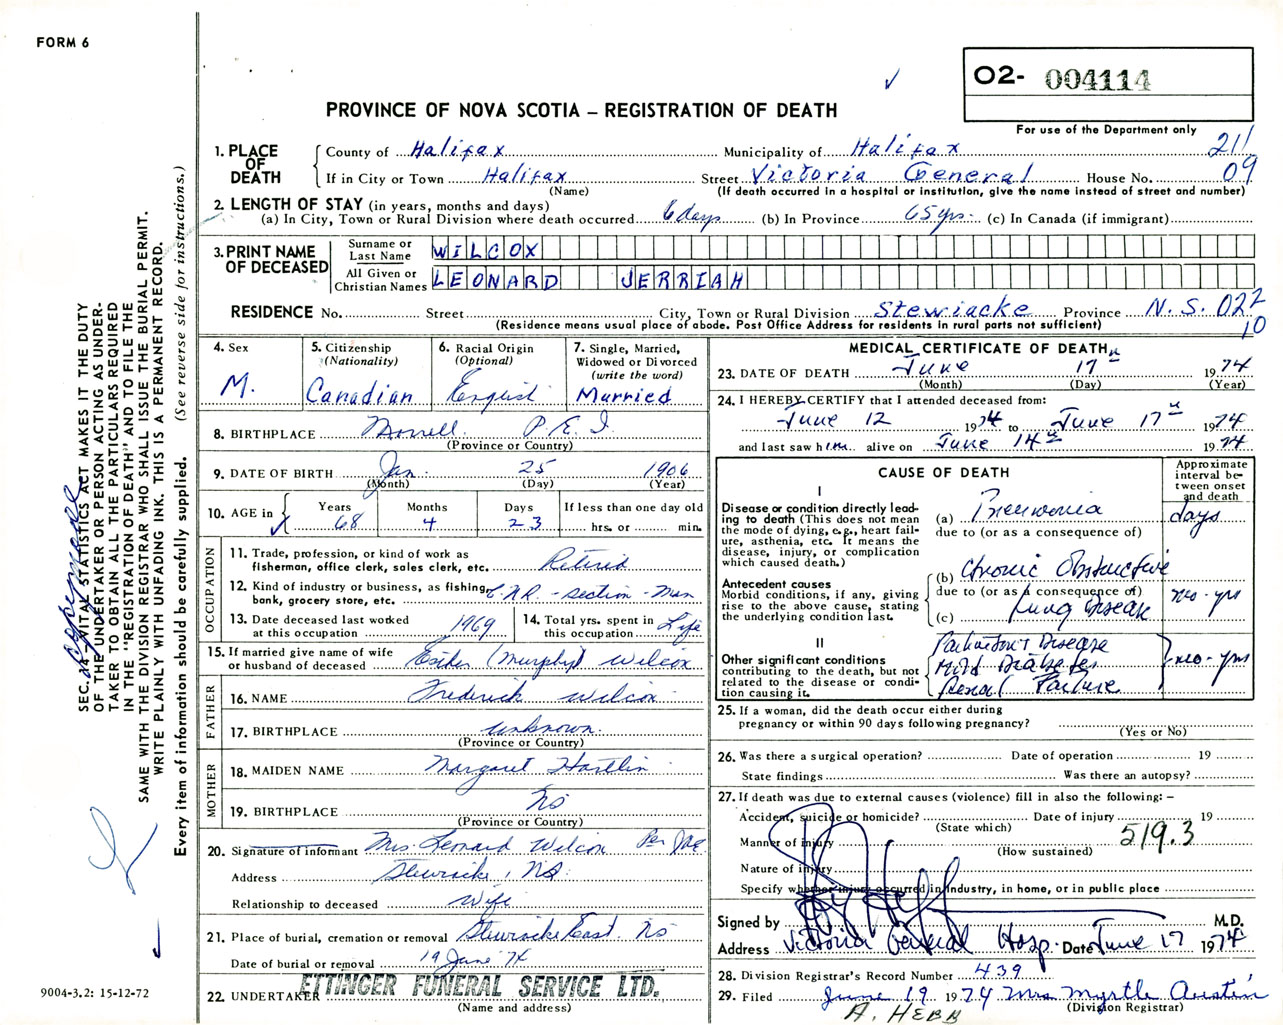 FORM 6
O2- 004114
PROVINCE OF NOVA SCOTIA – REGISTRATION OF DEATH
For use of the Department only
1. PLACE OF DEATH
County of Halifax Municipality of Halifax 211
If in City or Town Halifax Street Victoria General House No. 09
(Name) (If death occurred in a hospital or institution, give the name instead of street and number)
2. LENGTH OF STAY (in years, months and days)
(a) In City, Town or Rural Division where death occurred 6 days (b) In Province 65 yrs. (c) In Canada (if immigrant)
3. PRINT NAME OF DECEASED
Surname or Last Name WILCOX
All Given or Christian Names LEONARD JERRIAH
RESIDENCE No. Street City, Town or Rural Division Stewiacke Province N.S. 022
10
(Residence means usual place of abode. Post Office Address for residents in rural parts not sufficient)
4. Sex
M.
5. Citizenship
(Nationality)
Canadian
6. Racial Origin
(Optional)
English
7. Single, Married,
Widowed or Divorced
(write the word)
Married
8. BIRTHPLACE Morrell P.E.I
(Province or Country)
9. DATE OF BIRTH Jan. 25 1906
(Month) (Day) (Year)
10. AGE in
Years Months Days If less than one day old
68 4 23 hrs. or min.
OCCUPATION
11. Trade, profession, or kind of work as
fisherman, office clerk, sales clerk, etc. Retired
12. Kind of industry or business, as fishing,
bank, grocery store, etc. C.N.R. - Section - Man
13. Date deceased last worked
at this occupation 1969
14. Total yrs. spent in
this occupation Life
15. If married give name of wife
or husband of deceased Esther (Murphy) Wilcox
FATHER
16. NAME Frederick Wilcox
17. BIRTHPLACE unknown
(Province or Country)
MOTHER
18. MAIDEN NAME Margaret Hartlin
19. BIRTHPLACE NS
(Province or Country)
20. Signature of informant Mrs. Leonard Wilcox Per
Address Stewiacke, NS
Relationship to deceased Wife
21. Place of burial, cremation or removal Stewiacke East. NS
Date of burial or removal 19 June 74
22. UNDERTAKER ETTINGER FUNERAL SERVICE LTD.
(Name and address)
MEDICAL CERTIFICATE OF DEATH
23. DATE OF DEATH June 17th 1974
(Month) (Day) (Year)
24. I HEREBY CERTIFY that I attended deceased from:
June 12 1974 to June 17th 1974
and last saw him alive on June 14th 1974
CAUSE OF DEATH
Approximate
interval be-
tween onset
and death
I
Disease or condition directly lead-
ing to death (This does not mean
the mode of dying, e.g., heart fail-
ure, asthenia, etc. It means the
disease, injury, or complication
which caused death.)
(a) Pneumonia days
due to (or as a consequence of)
Antecedent causes
Morbid conditions, if any, giving
rise to the above cause, stating
the underlying condition last.
(b) Chronic Obstructive
due to (or as a consequence of)
(c) Lung Disease mo - yrs
II
Other significant conditions
contributing to the death, but not
related to the disease or condi-
tion causing it.
Parkinson's Disease
Mild Diabetes
Renal Failure
mo - yrs
25. If a woman, did the death occur either during
pregnancy or within 90 days following pregnancy?
(Yes or No)
26. Was there a surgical operation? Date of operation 19
State findings Was there an autopsy?
27. If death was due to external causes (violence) fill in also the following: –
Accident, suicide or homicide? Date of injury 19
(State which)
Manner of injury 519.3
(How sustained)
Nature of injury
Specify whether injury occurred in industry, in home, or in public place
Signed by M.D.
Address Victoria General Hosp. Date June 17 1974
28. Division Registrar's Record Number 439
29. Filed June 19 1974 Mrs Myrtle Austin
(Division Registrar)
A. HEBB
SEC. 24 – VITAL STATISTICS ACT MAKES IT THE DUTY
OF THE UNDERTAKER OR PERSON ACTING AS UNDER-
TAKER TO OBTAIN ALL THE PARTICULARS REQUIRED
IN THE "REGISTRATION OF DEATH" AND TO FILE THE
SAME WITH THE DIVISION REGISTRAR WHO SHALL ISSUE THE BURIAL PERMIT.
WRITE PLAINLY WITH UNFADING INK. THIS IS A PERMANENT RECORD.
Every item of information should be carefully supplied. (See reverse side for instructions.)
9004-3.2: 15-12-72